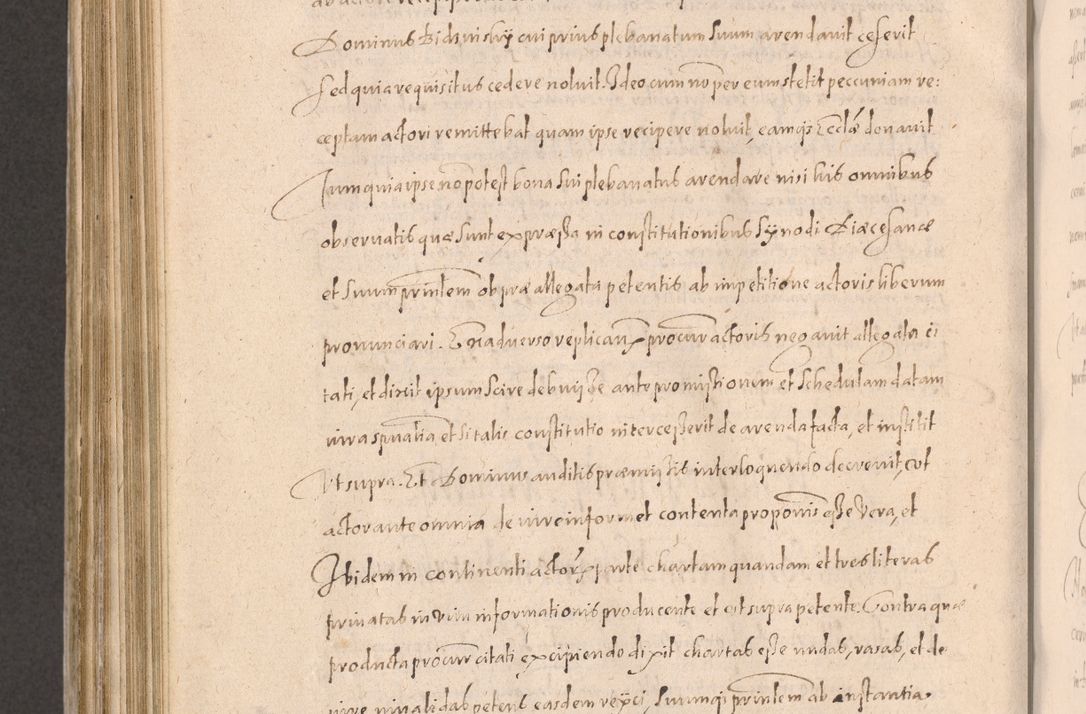 Dominus Bidzinsky cui prius plebanatum suum arendavit cesserit
sed quia requisitus cedere noluit. Ideo cum nõ per eum stetit peccuniam re:
ceptam actori remittebat quam ipse recipere noluit, eamqȝ Ecclæ donauit
Tum quia ipse nõ potest bona sui plebanatus arendare nisi his omnibus
obseruatis quæ sunt expræssa in constitutionibus Synodi Diæcesanæ
et suum prinlem ob præallegata petentis ab inpetitione actoris liberum
pronunciari. Ex adverso replicań procur actoris negauit allegata ci
tati, et dixit ipsum scire debuisse ante promistionem et schedulam datam
iura spualia, et si talis constitutio intercesserit de arenda facta, et institit
Ut supra. Et Dominus auditis præmissis interloquendo decreuit, ut
actor ante omnia de iure informet contenta proponis esse vera, et
Ibidem in continenti actor parte chartam quandam et tres literas
priuatas in vim informationis producente et ut supra petente. Contra quæ
producta procur citati excipiendo dixit chartas esse nudas, rasas, et de
iure inualidas petens easdem reijci, suumqȝ prinlem ab instantia